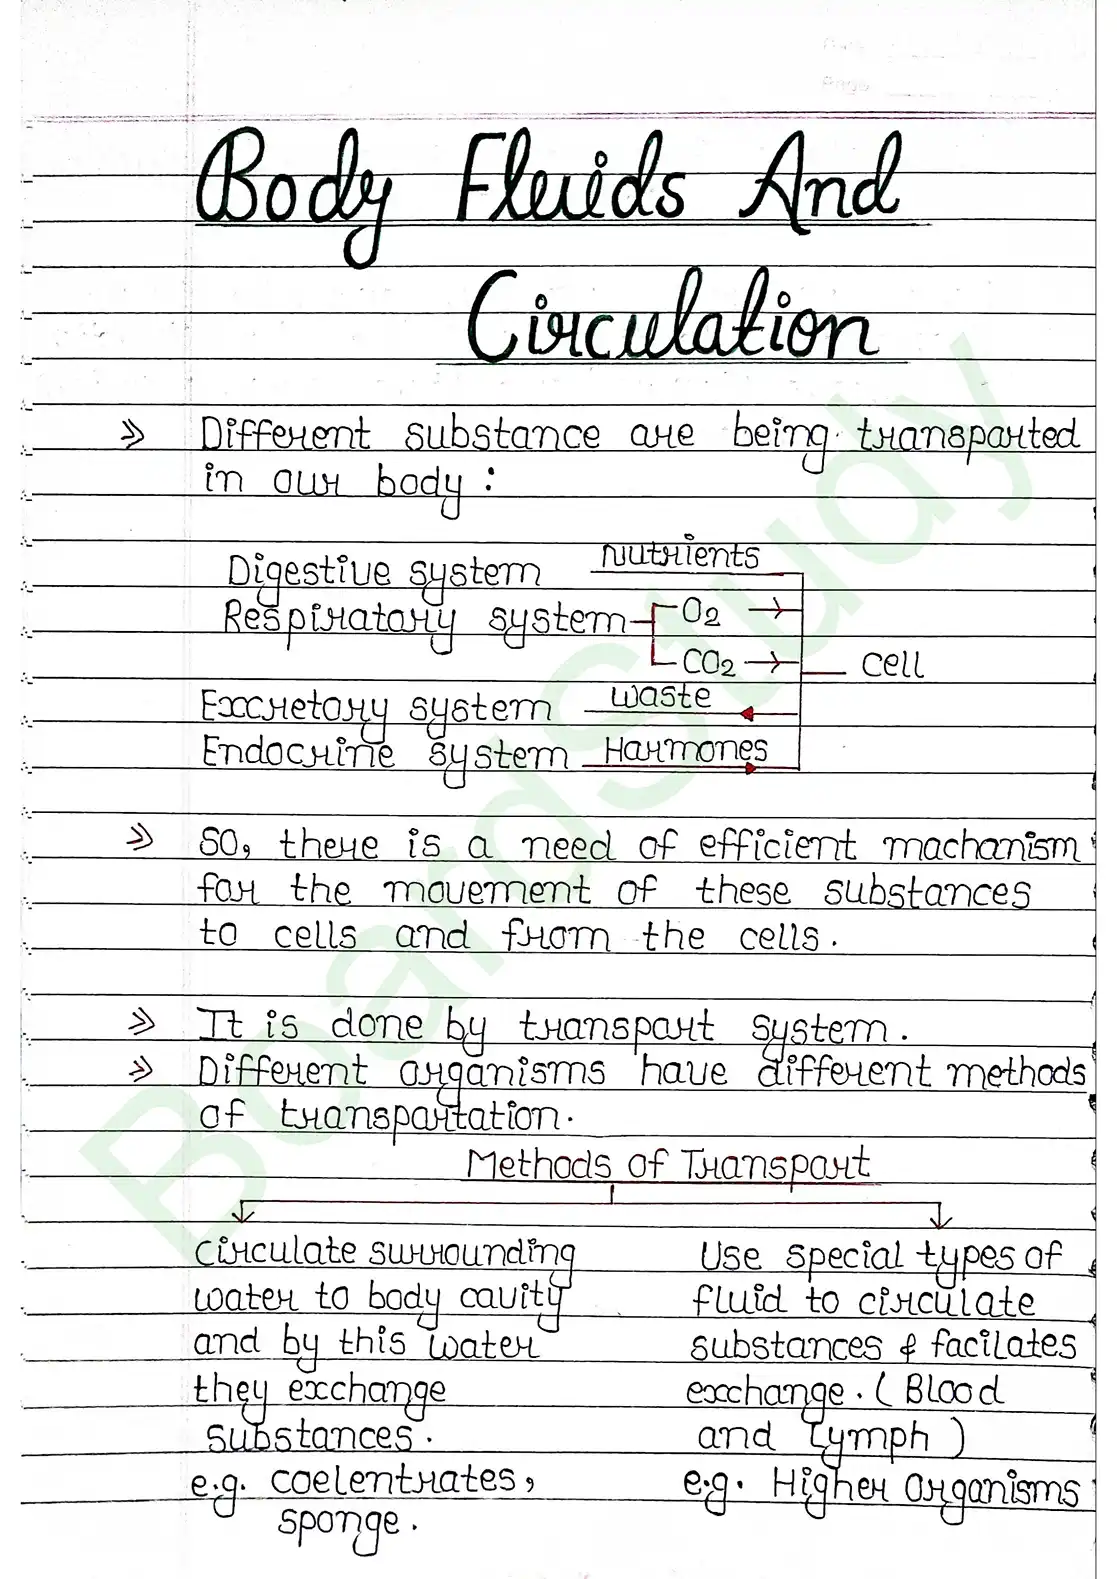 Body Fluids And
Circulation
» Different substance are being transported
in our body :
Digestive system Nutrients
Respiratory system O2
CO2 cell
Excretory system waste
Endocrine system Harmones
» So, there is a need of efficient machanism
for the movement of these substances
to cells and from the cells.
» It is done by transport system.
» Different organisms have different methods
of transportation.
Methods of Transport
Circulate surrounding
water to body cavity
and by this water
they exchange
substances.
e.g. coelentrates,
sponge.
Use special types of
fluid to circulate
substances & facilates
exchange. (Blood
and Lymph)
e.g. Higher organisms
Boardstudy